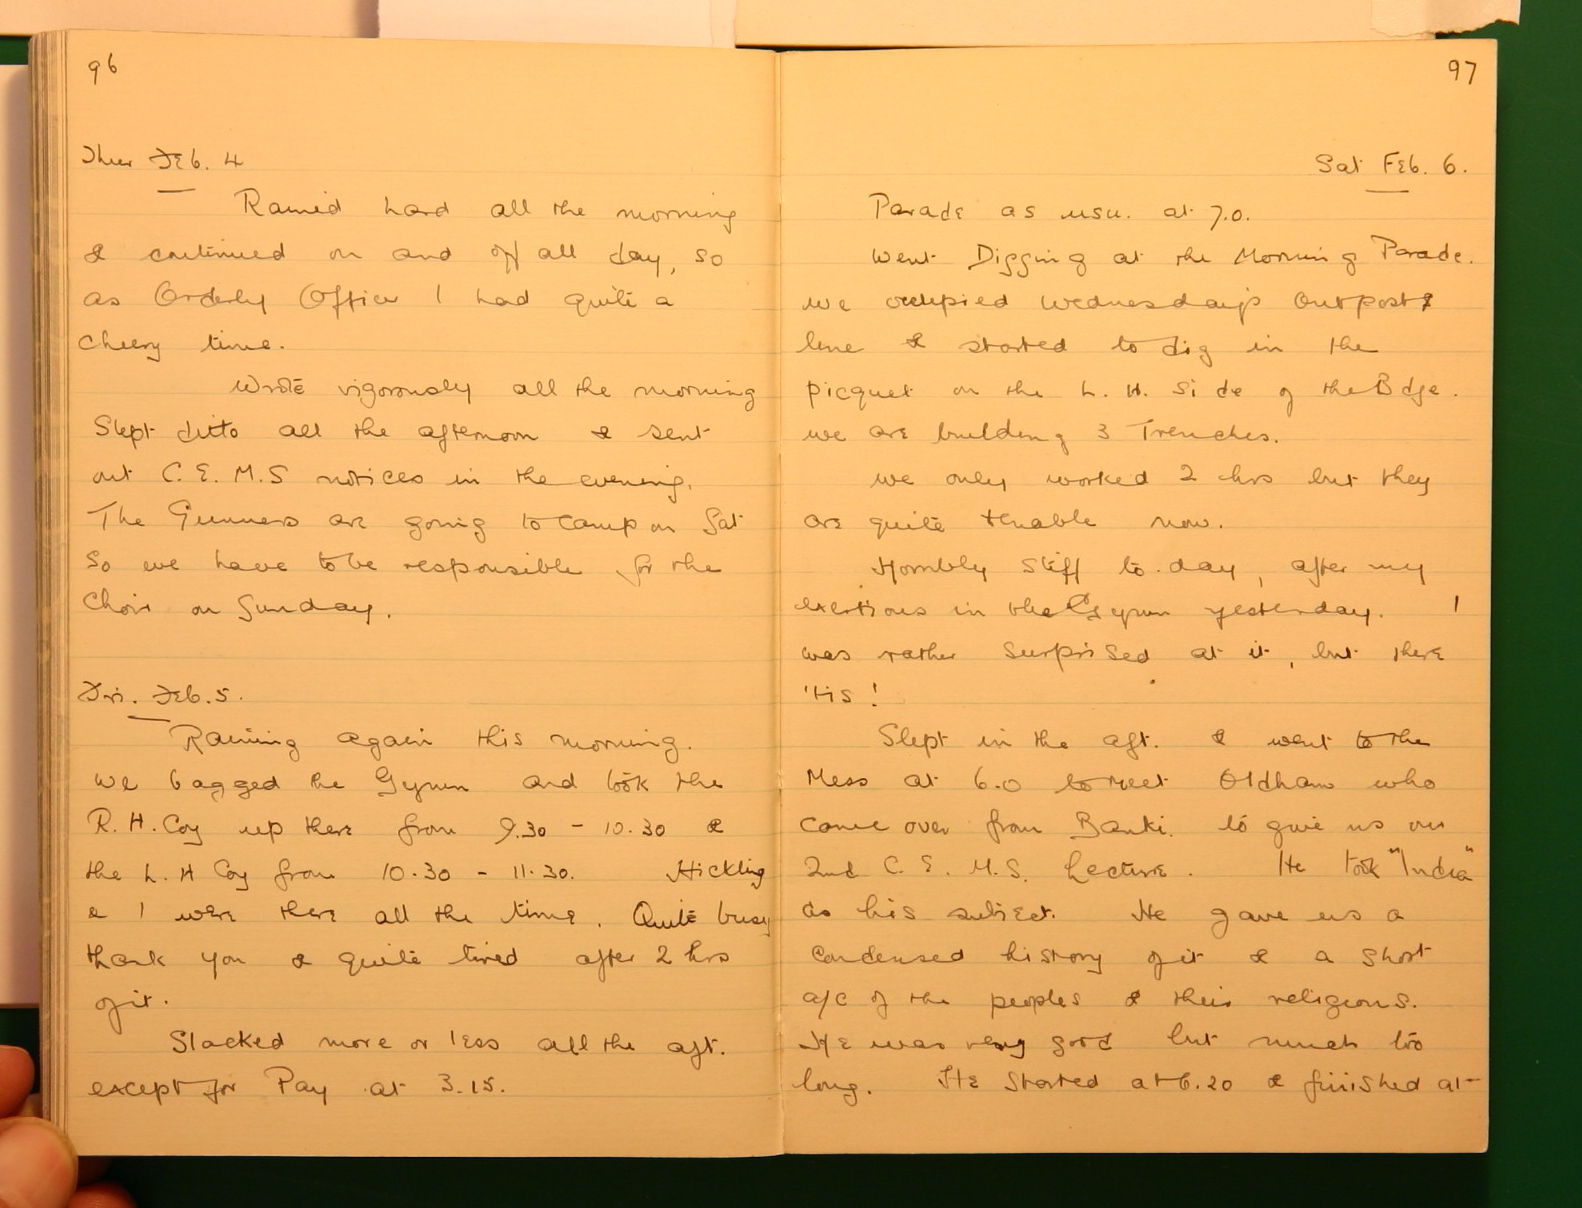 96
Thur Feb. 4
Rained hard all the morning
& continued on and off all day, so
as Orderly Officer I had quite a
cheery time.
Wrote vigorously all the morning
Slept ditto all the afternoon & sent
out C.E.M.S notices in the evening.
The Gunners are going to camp on Sat
so we have to be responsible for the
Choir on Sunday.
Fri. Feb. 5.
Raining again this morning.
we bagged the Gymn and took the
R.H. Coy up there from 9.30 - 10.30 &
the L.H Coy from 10.30 - 11.30. Hickling
& I were there all the time. Quite busy
thank you & quite tired after 2 hrs
of it.
Slacked more or less all the aft.
except for Pay at 3.15.
97
Sat Feb. 6.
Parade as usu. at 7.0.
Went Digging at the Morning Parade.
we occupied Wednesday's Outpost
line & started to dig in the
picquet on the L.H. Side of the Bdge.
we are building 3 Trenches.
we only worked 2 hrs but they
are quite tenable now.
Horribly Stiff to day, after my
exertions in the Gymn yesterday. I
was rather surprised at it, but there
'tis!
Slept in the aft. & went to the
Mess at 6.0 to meet Oldham who
came over from Banki. to give us our
2nd C.E.M.S. Lecture. He took "India"
as his subject. He gave us a
condensed history of it & a short
a/c of the peoples & their religions.
He was very good but much too
long. He started at 6.20 & finished at